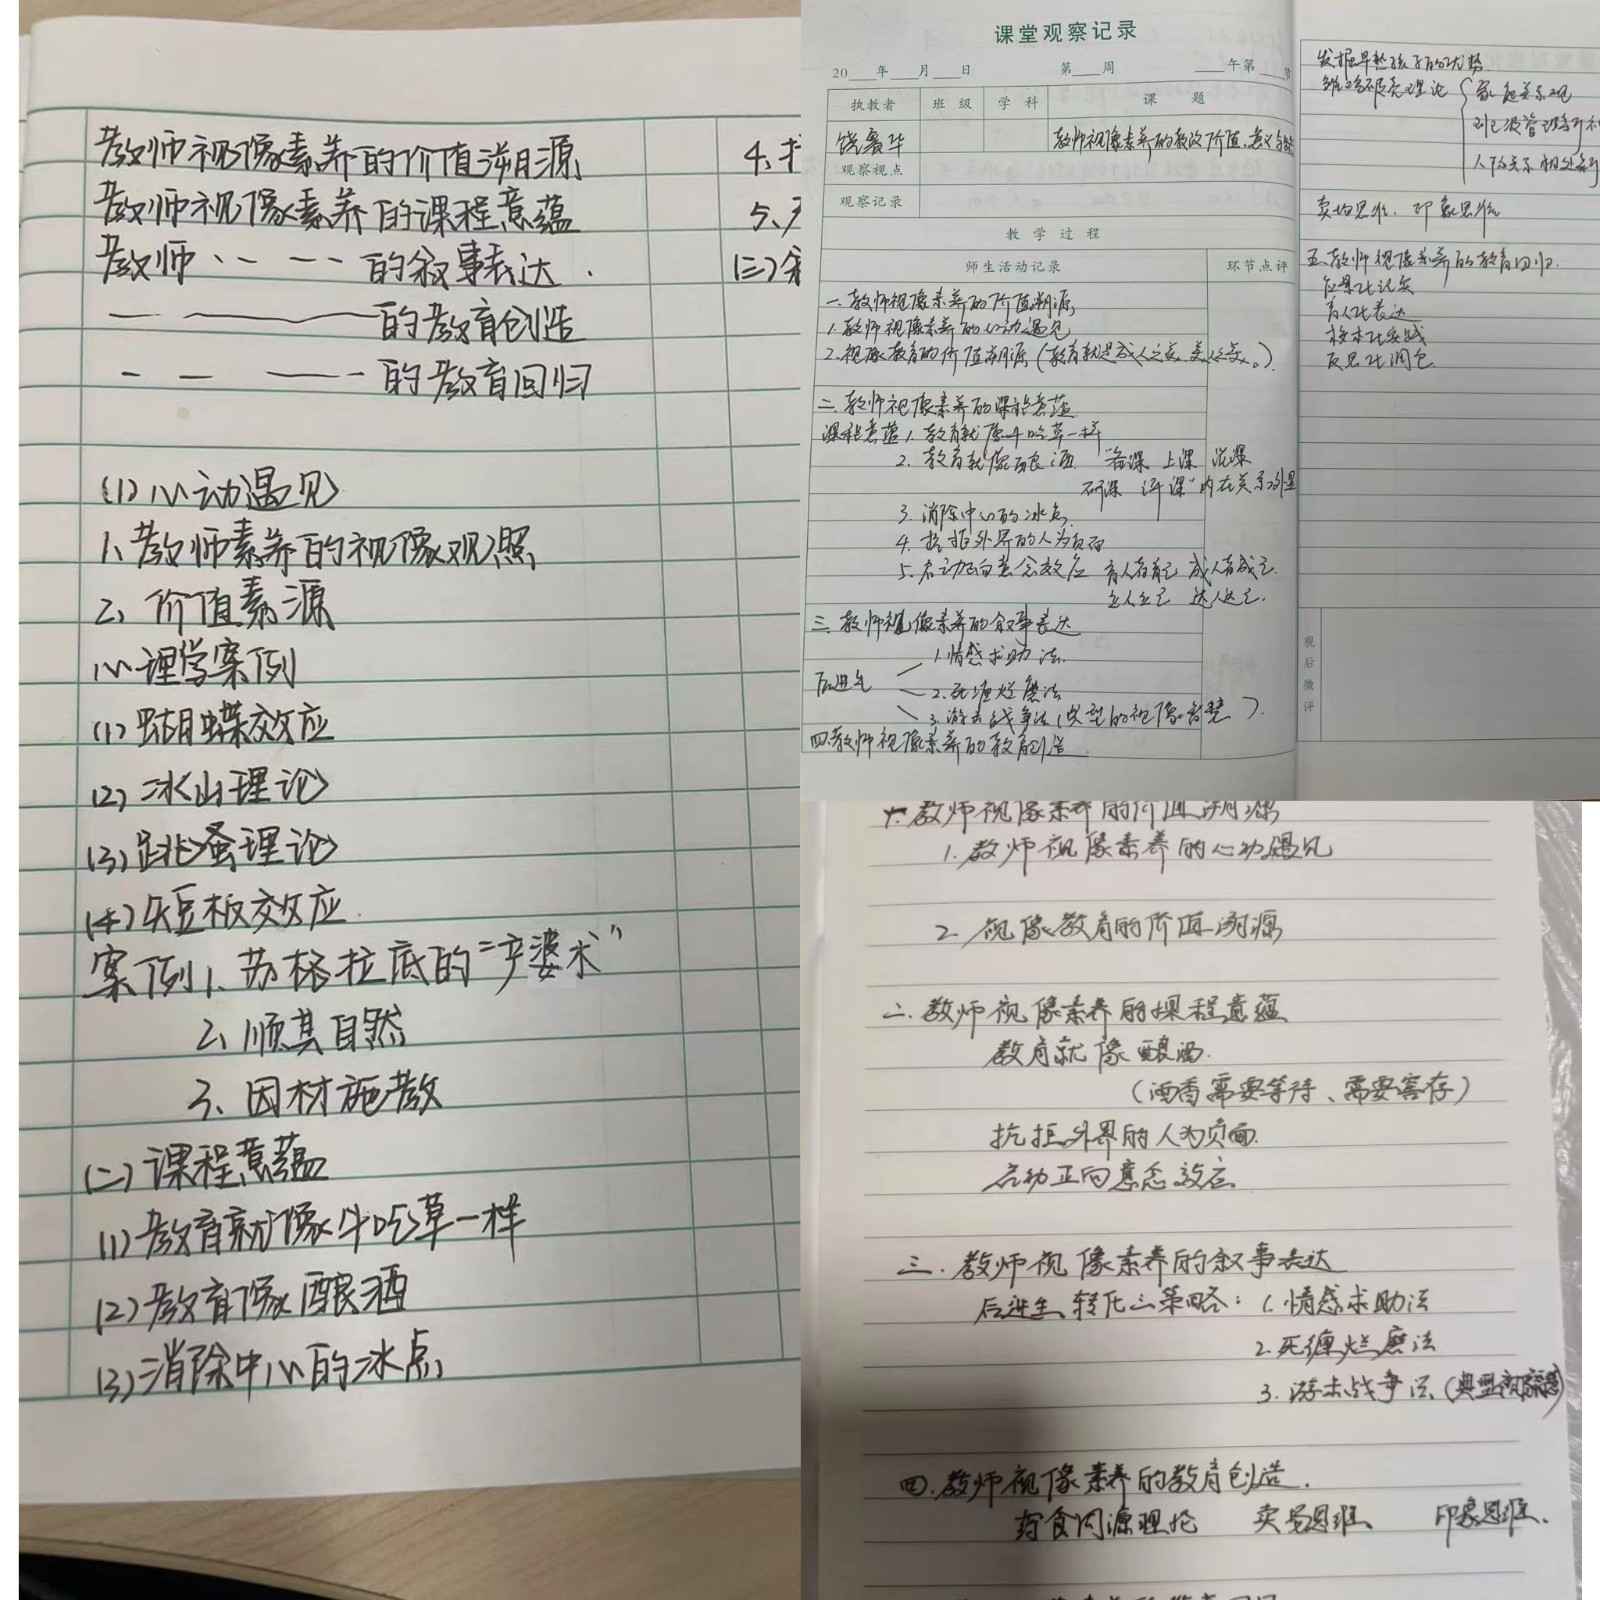 教师视像素养的价值溯源
教师视像素养的课程意蕴
教师 的叙事表达.
的教育创造
的教育回归
(1)心动遇见
1、教师素养的视像观照
2、价值素源
心理学案例
(1)蝴蝶效应
(2)冰山理论
(3)跳蚤理论
(4)短板效应.
案例1、苏格拉底的“产婆术”
2、顺其自然
3、因材施教
(二)课程意蕴
(1)教育就像牛吃草一样
(2)教育像酿酒
(3)消除中心的冰点
4、
5、
(三)
课堂观察记录
20 年 月 日 第 周 午第 节
执教者 班级 学科 课题
饶 华 教师视像素养的教改价值、意义与
观察视点
观察记录
教学过程
师生活动记录 环节点评
一、教师视像素养的价值溯源
1、教师视像素养的心动遇见
2、视像教育的价值溯源(教育就是成人之美、美人之美。)
二、教师视像素养的课程意蕴
课程意蕴1、教育就像牛吃草一样
2、教育就像酿酒 “备课 上课 说课
研课 评课”内在关系
3、消除中心的冰点
4、抗拒外界的人为负面
5、启动正向意念效应 育人育己 成人成己
立人立己 达人达己.
三、教师视像素养的叙事表达
后进生
1.情感求助法.
2.死缠烂磨法
3.游击战争法(典型的视像 )
四.教师视像素养的教育创造.
发掘早熟孩子的优势
理论
卖场思维、印象思维
五、教师视像素养的教育回归.
育人比表达
观后微评
一、教师视像素养的价值溯源
1.教师视像素养的心动遇见
2.视像教育的价值溯源
二.教师视像素养的课程意蕴
教育就像酿酒.
(酒香需要等待、需要窖存)
抗拒外界的人为负面.
启动正向意念效应
三.教师视像素养的叙事表达
后进生转化三策略:1.情感求助法
2.死缠烂磨法
3.游击战争法(典型
四.教师视像素养的教育创造.
药食同源理论 卖场思维、 印象思维、